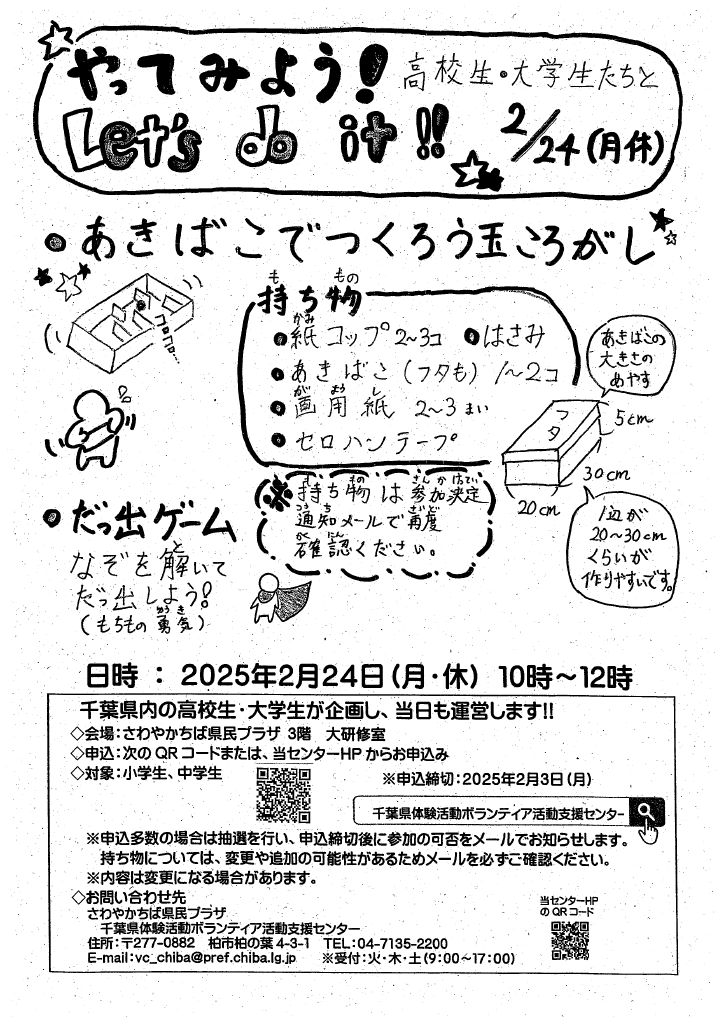 やってみよう! 高校生・大学生たちと
Let's do it!! 2/24(月休)
●あきばこでつくろう玉ころがし
コロコロ...
持ち物
もちもの
●紙コップ2~3コ ●はさみ
かみ
●あきばこ(フタも) 1~2コ
●画用紙 2~3まい
がようし
●セロハンテープ
あきばこの
大きさの
めやす
フタ
5cm
30cm
20cm
1辺が
20~30cm
くらいが
作りやすいです。
※持ち物は参加決定
もちもの さんかけってい
通知メールで再度
つうち さいど
確認ください。
かくにん
●だっ出ゲーム
なぞを解いて
と
だっ出しよう!
(もちもの 勇気)
ゆうき
日時 : 2025年2月24日(月・休) 10時~12時
千葉県内の高校生・大学生が企画し、当日も運営します!!
◇会場:さわやかちば県民プラザ 3階 大研修室
◇申込:次のQRコードまたは、当センターHPからお申込み
◇対象:小学生、中学生
※申込締切:2025年2月3日(月)
千葉県体験活動ボランティア活動支援センター
※申込多数の場合は抽選を行い、申込締切後に参加の可否をメールでお知らせします。
持ち物については、変更や追加の可能性があるためメールを必ずご確認ください。
※内容は変更になる場合があります。
◇お問い合わせ先
さわやかちば県民プラザ
千葉県体験活動ボランティア活動支援センター
住所:〒277-0882 柏市柏の葉4-3-1 TEL:04-7135-2200
E-mail:vc_chiba@pref.chiba.lg.jp ※受付:火・木・土(9:00~17:00)
当センターHP
のQRコード